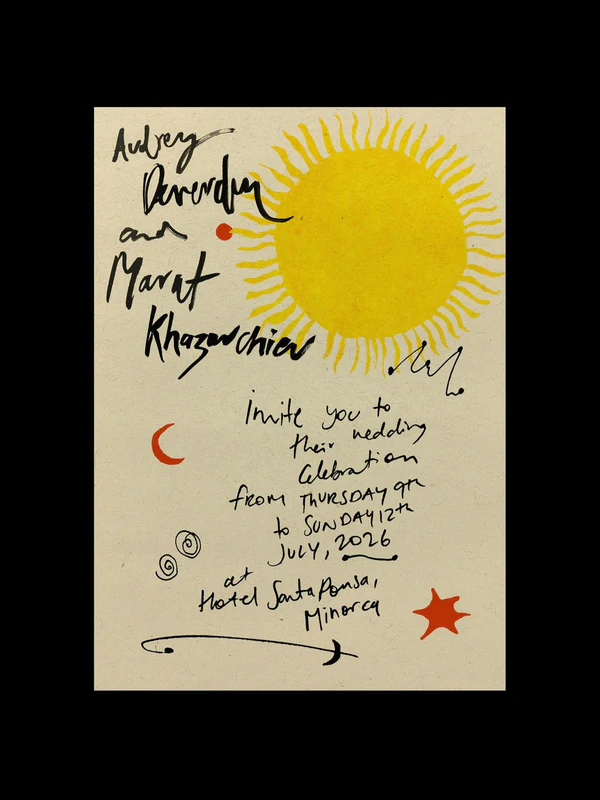 Audrey
Deverdun
and
Marat
Khazarchiev
invite you to
their wedding
Celebration
from THURSDAY 9th
to SUNDAY 12th
JULY, 2026
at
Hotel Santa Ponsa,
Minorca